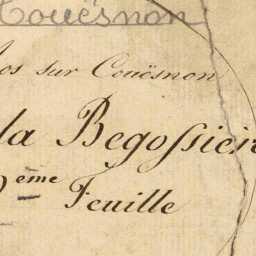 Couësnon
os sur Couësnon
la Begoſsièr
ème Feuille